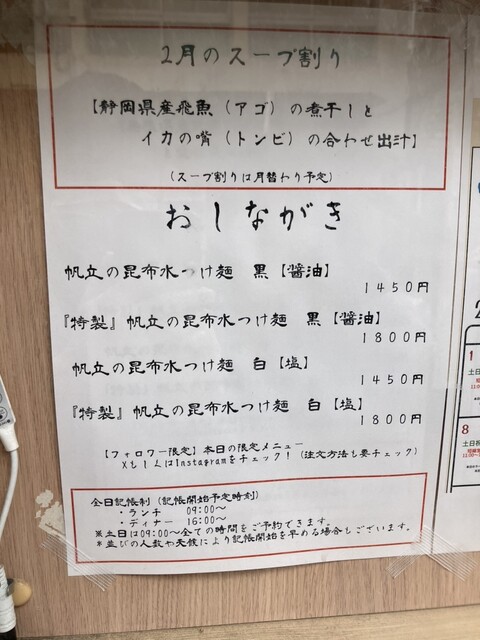 2月のスープ割り
【静岡県産飛魚（アゴ）の煮干しと
イカの嘴（トンビ）の合わせ出汁】
（スープ割りは月替わり予定）
おしながき
帆立の昆布水つけ麺　黒【醤油】
1450円
『特製』帆立の昆布水つけ麺　黒【醤油】
1800円
帆立の昆布水つけ麺　白【塩】
1450円
『特製』帆立の昆布水つけ麺　白【塩】
1800円
【フォロワー限定】本日の限定メニュー
XもしくはInstagramをチェック！（注文方法も要チェック）
全日記帳制（記帳開始予定時刻）
・ランチ　09:00〜
・ディナー　16:00〜
※土日は09:00〜全ての時間をご予約できます。
※並びの人数や天候により記帳開始を早める場合もございます。
1
土日
8
土日祝